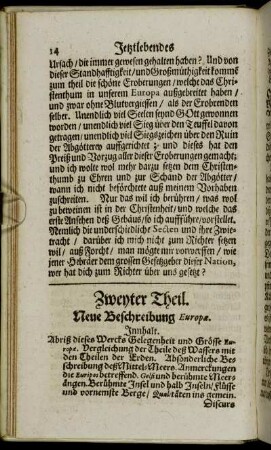 14 Jetztlebendes
Ursach / die immer gewesen gehalten haben? And von
dieser Standhafftigkeit / und Großmüthigkeit kommt
zum theil die schöne Eroberungen / welche das Chri-
stenthum in unserem Europa außgebreitet haben /
und zwar ohne Blutvergiessen / als der Erobrenden
selber. Unendlich viel Seelen seynd Gott gewonnen
worden / unendlich viel Sieg über den Teuffel davon
getragen / unendlich viel Siegszeichen über den Ruin
der Abgötterey auffgerichtet; und dieses hat den
Preiß und Vorzug aller dieser Eroberungen gemacht;
und ich wolte wol mehr darzu setzen dem Christen-
thumb zu Ehren und zur Schand der Abgötter /
wann ich nicht beförchtete auß meinem Vorhaben
zuschreiten. Nur das wil ich berühren / was wol
zu beweinen ist in der Christenheit / und welche das
erste Ansehen diß Gebäus / so ich aufführe / vorstellet.
Nemlich die underschidliche Secten und ihre Zwie-
tracht / darüber ich mich nicht zum Richter setzen
wil / auß Forcht / man mögte mir vorwerffen / wie
jener Hebræer dem grossen Gesetzgeber dieser Nation,
wer hat dich zum Richter über uns gesetzt?
Zweyter Theil.
Neue Beschreibung Europæ.
Innhalt.
Abriß dieses Wercks Gelegenheit und Grösse Eu-
ropæ. Vergleichung der Theile deß Wassers mit
den Theilen der Erden. Absönderliche Be-
schreibung deß Mittel-Meers. Anmerckungen
die Euripos betreffend. Golfi und berühmte Meer-
ängen. Berühmte Insul und halb Inseln / Flüsse
und vornemste Berge / Qualitäten ins gemein.
Discurs